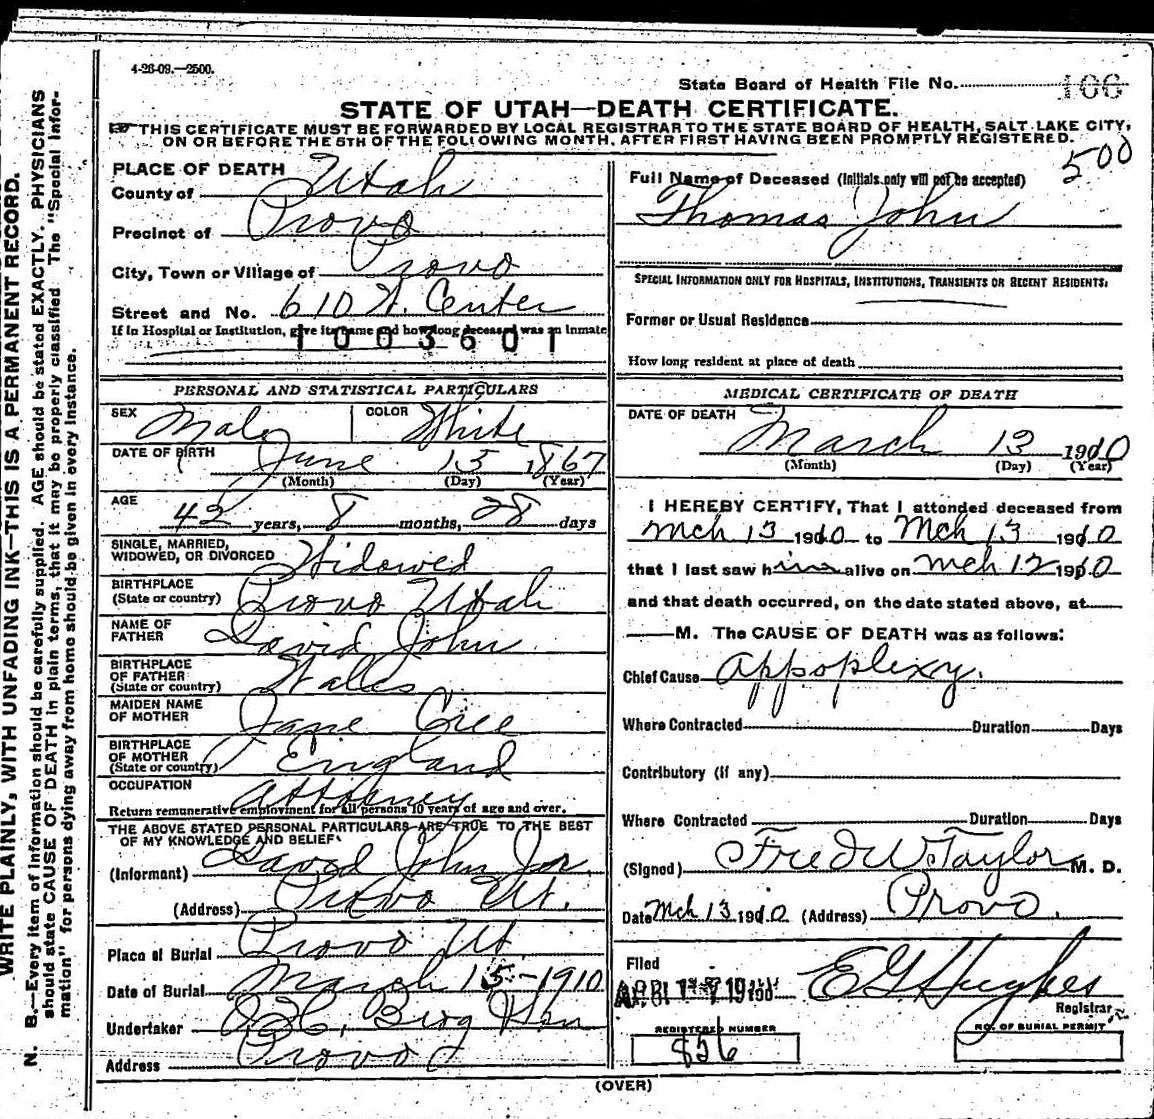 4-26-09.—2500.
State Board of Health File No. 166
STATE OF UTAH—DEATH CERTIFICATE.
THIS CERTIFICATE MUST BE FORWARDED BY LOCAL REGISTRAR TO THE STATE BOARD OF HEALTH, SALT LAKE CITY,
ON OR BEFORE THE 5TH OF THE FOLLOWING MONTH, AFTER FIRST HAVING BEEN PROMPTLY REGISTERED.
500
PLACE OF DEATH
County of Utah
Precinct of Provo
City, Town or Village of Provo
Street and No. 610 W. Center
If in Hospital or Institution, give its name and how long deceased was an inmate
1003601
PERSONAL AND STATISTICAL PARTICULARS
SEX Male COLOR White
DATE OF BIRTH June 15 1867
(Month) (Day) (Year)
AGE 42 years, 8 months, 28 days
SINGLE, MARRIED,
WIDOWED, OR DIVORCED Widowed
BIRTHPLACE
(State or country) Provo Utah
NAME OF
FATHER David John
BIRTHPLACE
OF FATHER
(State or country) Wales
MAIDEN NAME
OF MOTHER Jane Cree
BIRTHPLACE
OF MOTHER
(State or country) England
OCCUPATION Attorney
Return remunerative employment for all persons 10 years of age and over.
THE ABOVE STATED PERSONAL PARTICULARS ARE TRUE TO THE BEST
OF MY KNOWLEDGE AND BELIEF
(Informant) David John Jnr.
(Address) Provo Ut.
Place of Burial Provo Ut
Date of Burial March 15-1910
Undertaker Berg
Address Provo
Full Name of Deceased (Initials only will not be accepted)
Thomas John
SPECIAL INFORMATION ONLY FOR HOSPITALS, INSTITUTIONS, TRANSIENTS OR RECENT RESIDENTS:
Former or Usual Residence
How long resident at place of death
MEDICAL CERTIFICATE OF DEATH
DATE OF DEATH March 13 1910
(Month) (Day) (Year)
I HEREBY CERTIFY, That I attended deceased from
Mch 13 1910 to Mch 13 1910
that I last saw him alive on Mch 12 1910
and that death occurred, on the date stated above, at
M. The CAUSE OF DEATH was as follows:
Chief Cause Appoplexy.
Where Contracted Duration Days
Contributory (if any)
Where Contracted Duration Days
(Signed) Fred W. Taylor M. D.
Date Mch 13 1910 (Address) Provo.
Filed
E G Hughes
Registrar
REGISTERED NUMBER
856
NO. OF BURIAL PERMIT
(OVER)
WRITE PLAINLY, WITH UNFADING INK—THIS IS A PERMANENT RECORD.
N. B.—Every item of information should be carefully supplied. AGE should be stated EXACTLY. PHYSICIANS
should state CAUSE OF DEATH in plain terms, that it may be properly classified. The "Special Infor-
mation" for persons dying away from home should be given in every instance.